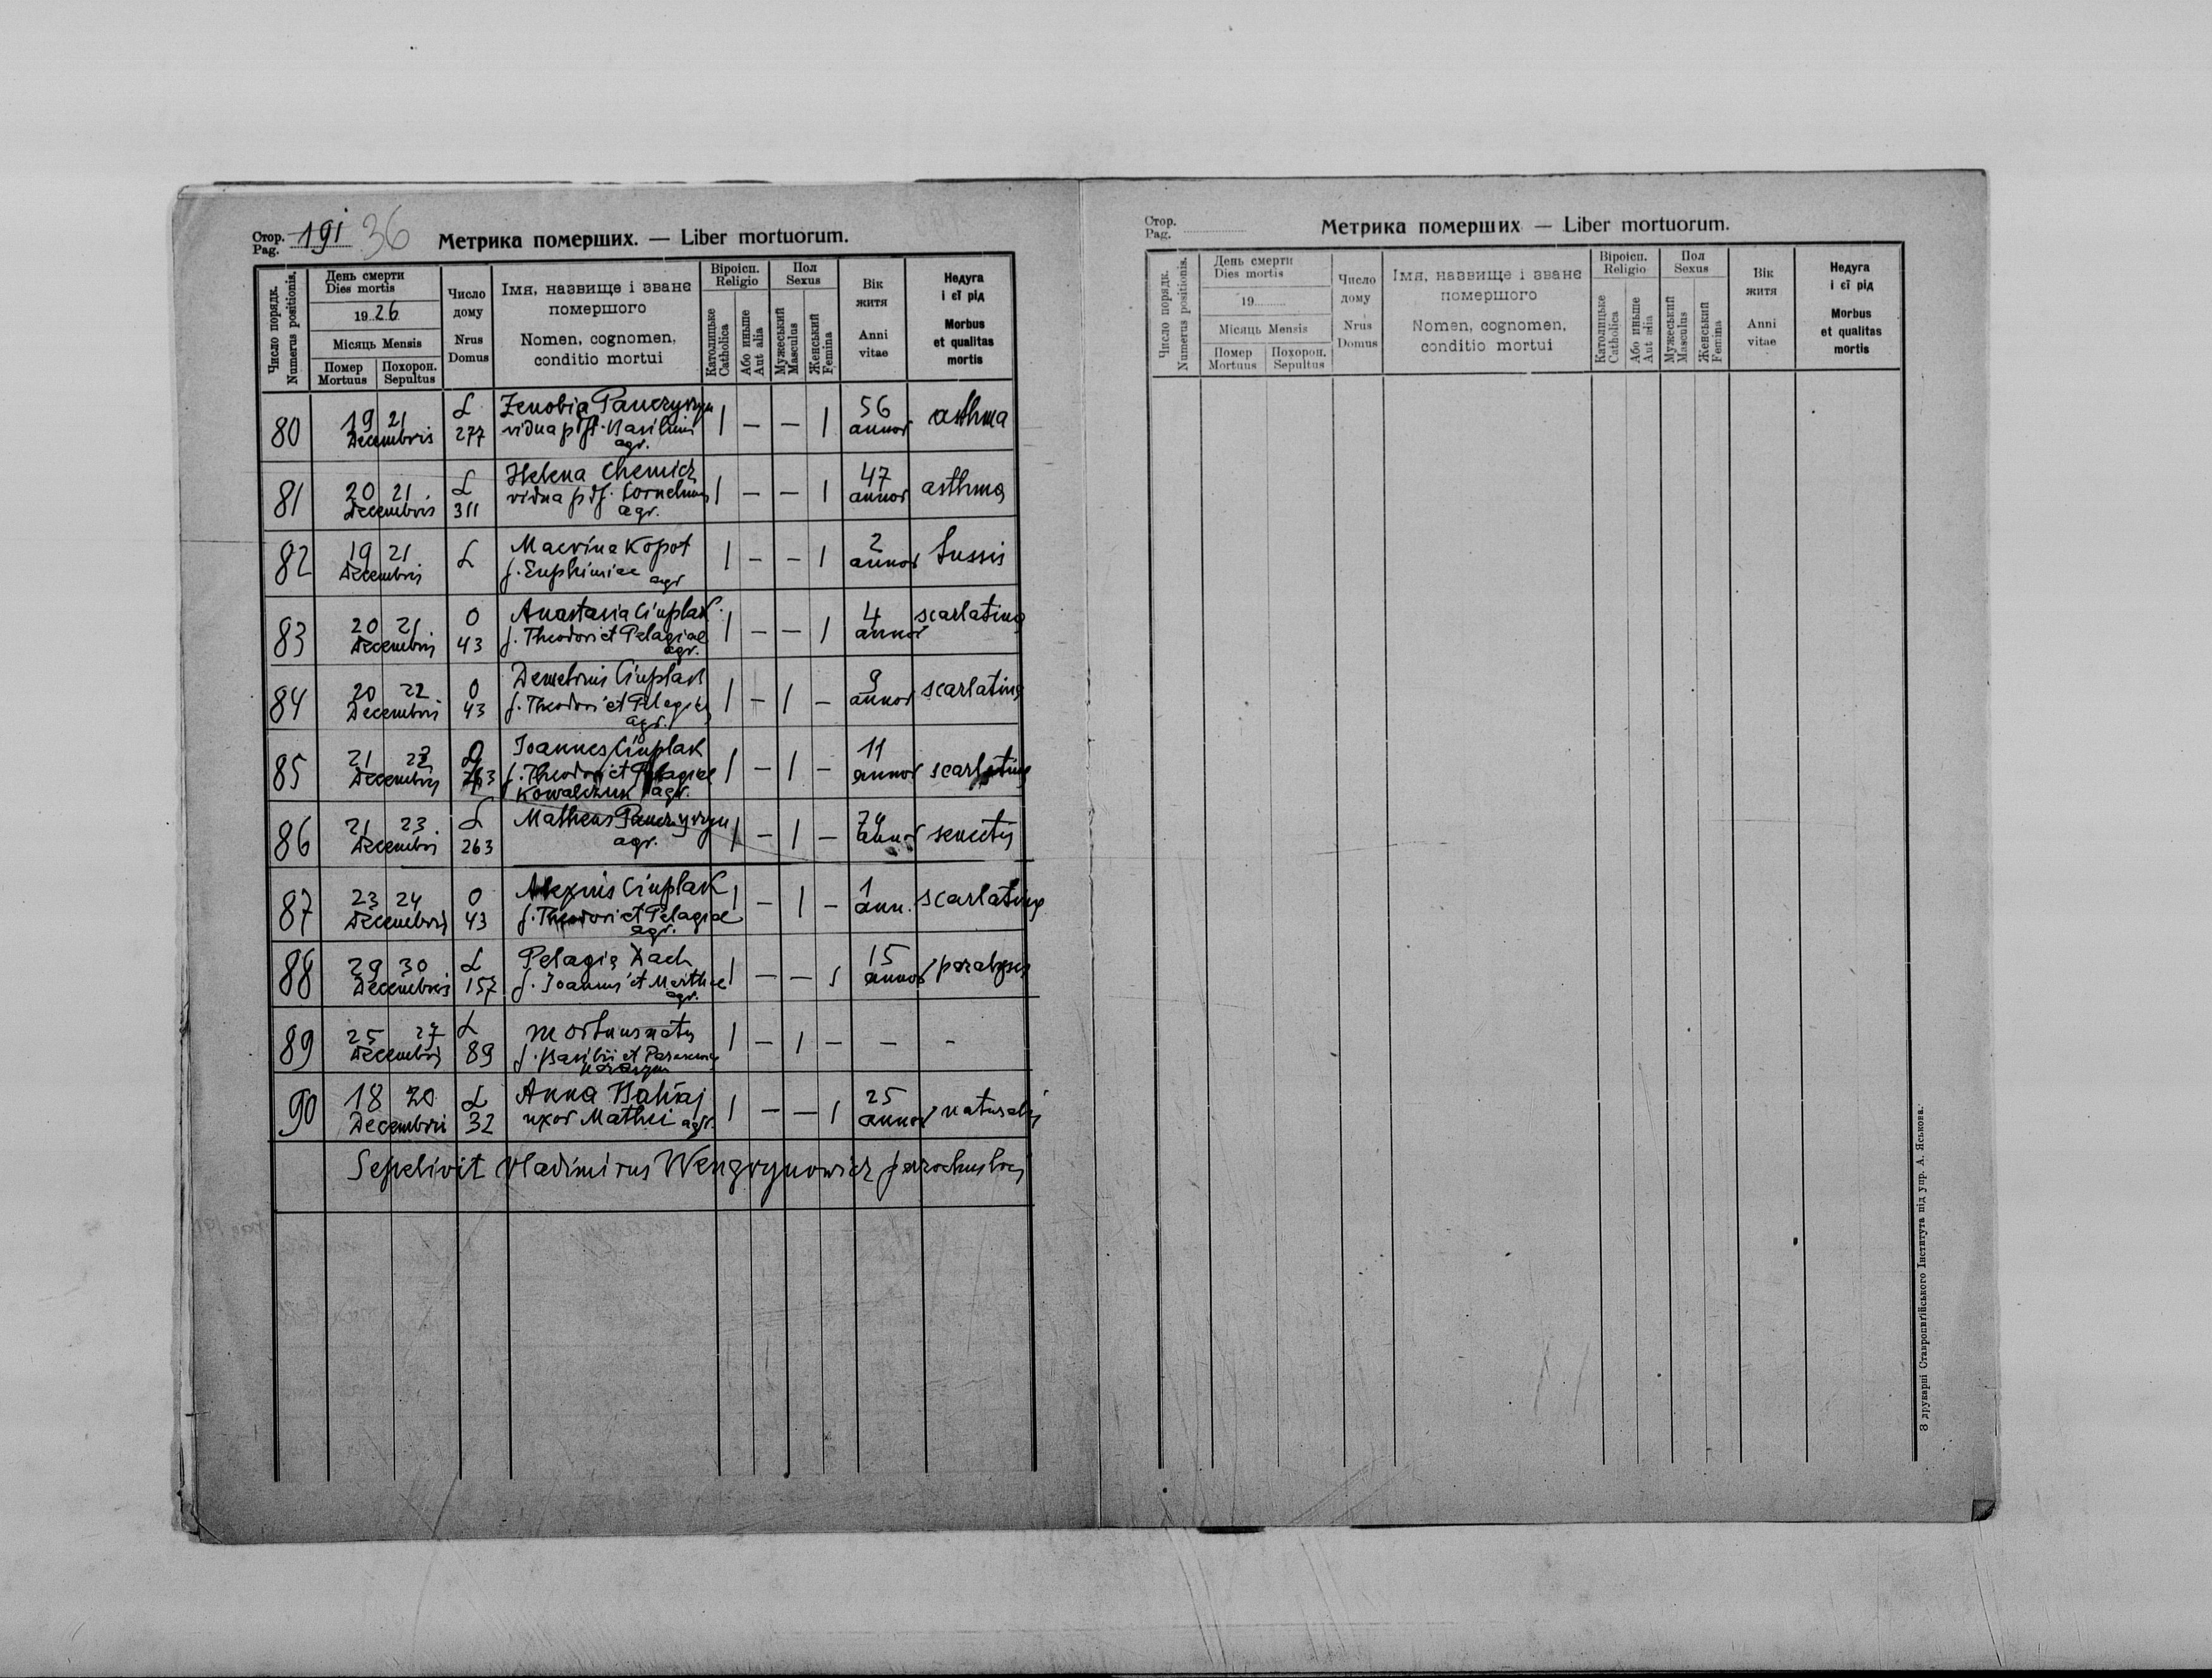 Стор. Pag. 191 36
Метрика померших. — Liber mortuorum.
Число порядк. Numerus positionis.
День смерти
Dies mortis
1926
Місяць Mensis
Помер Mortuus
Похорон. Sepultus
Число дому
Nrus Domus
Імя, назвище і званє
помершого
Nomen, cognomen,
conditio mortui
Віроісп. Religio
Католицьке Catholica
Або иньше Aut alia
Пол Sexus
Мужеський Masculus
Женський Femina
Вік житя
Anni vitae
Недуга і єї рід
Morbus et qualitas mortis
80 19 21 Decembris L 277 Zenobia
vidua agr. | — — | 56 annor asthma
81 20 21. Decembris L 311 Helena Chemicz
vidua agr. | — — | 47 annor asthma
82 19 21 Decembris L Macrina Kopot
f. Euphimiae agr | — — | 2 annor tussis
83 20 21 Decembris O 43 Anastasia Ciuplak
f. Theodori et Pelagiae agr. | — — | 4 annor scarlatina
84 20 22 Decembris O 43 Demetrius Ciuplak
f. Theodori et Pelagiae agr. | — | — 9 annor scarlatina
85 21 Decembris Joannes Ciuplak
f. Theodori et Pelagiae
Kowalczuk agr. | — | — 11 annor scarlatina
86 21 23. Decembris L 263 Matheus
agr. | — | — annor
87 23 24 Decembris O 43 Alexius Ciuplak
f. Theodori et Pelagiae agr. | — | — 1 ann. scarlatina
88 29 30 Decembris L 157 Pelagia
f. Joannis et Marthae agr. | — — | 15 annor paralysis
89 25 27 Decembris L 89 mortuus natus
f. Basilii et | — | — — -
90 18 20 Decembris L 32 Anna
uxor Mathei agr. | — — | 25 annor naturalis
Sepelivit Vladimirus Wengrynowicz parochus loci
Стор. Pag.
Метрика померших — Liber mortuorum.
Число порядк. Numerus positionis.
День смерти
Dies mortis
19
Місяць Mensis
Помер Mortuus
Похорон. Sepultus
Число дому
Nrus Domus
Імя, назвище і званє
помершого
Nomen, cognomen,
conditio mortui
Віроісп. Religio
Католицьке Catholica
Або иньше Aut alia
Пол Sexus
Мужеський Masculus
Женський Femina
Вік житя
Anni vitae
Недуга і єї рід
Morbus et qualitas mortis
З друкарні Ставропигійського Інститута під упр. А. Яськова.